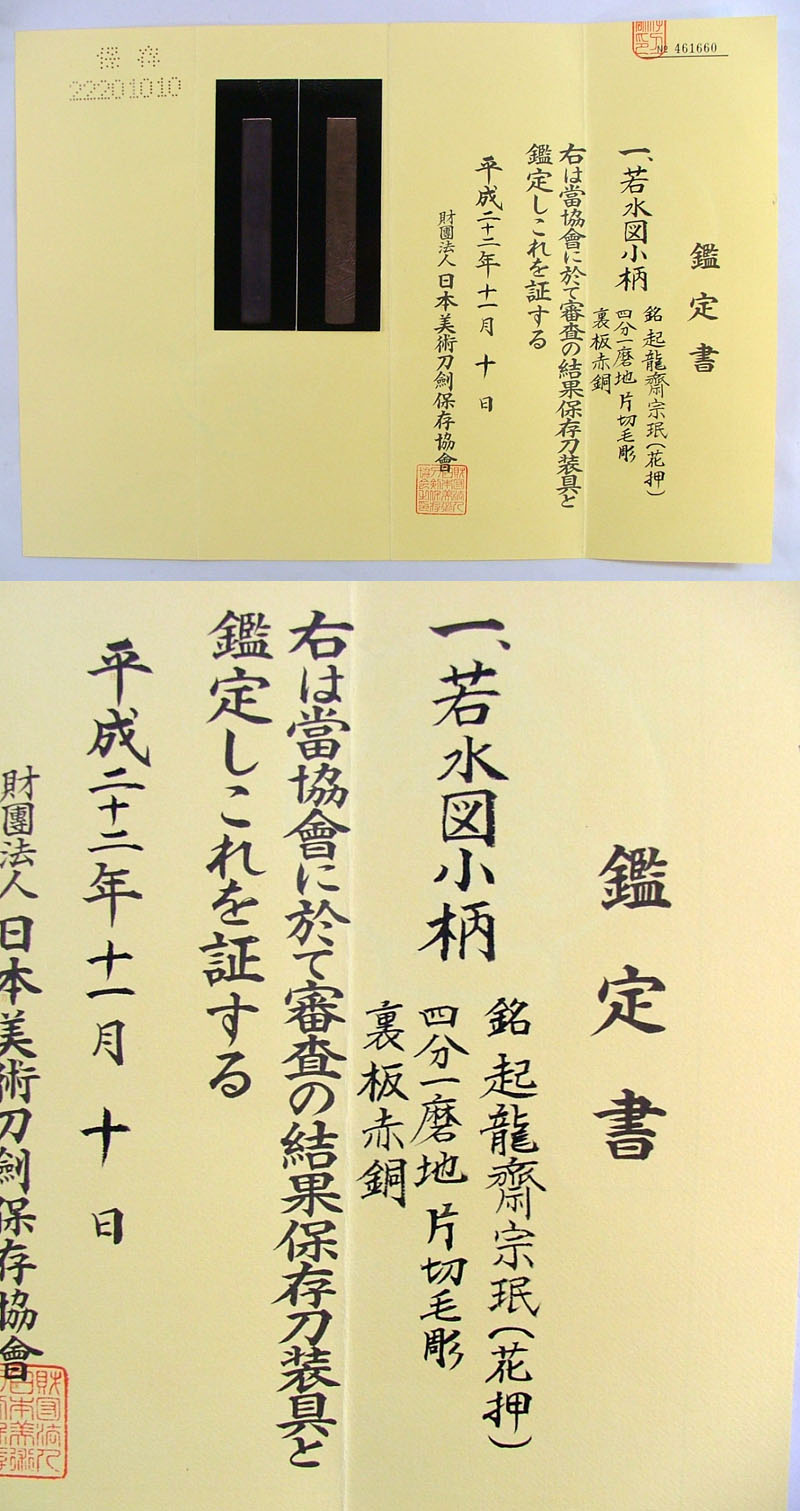 № 461660
鑑定書
一、若水図小柄
銘 起龍齋宗珉(花押)
四分一磨地 片切毛彫
裏板赤銅
右は當協會に於て審査の結果保存刀装具と
鑑定しこれを証する
平成二十二年十一月 十 日
財團法人 日本美術刀劍保存協會
保存
22201010
鑑定書
一、若水図小柄
銘 起龍齋宗珉(花押)
四分一磨地 片切毛彫
裏板赤銅
右は當協會に於て審査の結果保存刀装具と
鑑定しこれを証する
平成二十二年十一月 十 日
財團法人 日本美術刀劍保存協會